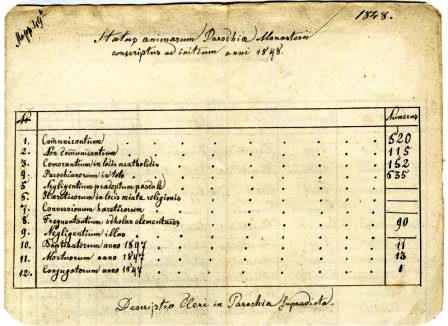 1848.
Status animarum Parochiæ Monasterii
conscriptus ad initium anni 1848.
No. Numerus
1. Communicantium 520
2. Non Communicantium 115
3. Comorantium in locis acatholicis 152
4. Parochianorum in toto 635
5. Negligentium præceptum paschale
6. Hæreticorum in locis mixtæ religionis
7. Conversionum hæreticorum
8. Frequentantium scholas elementares 90
9. Negligentium illas
10. Baptisatorum anno 1847 11
11. Mortuorum anno 1847 13
12. Conjugatorum anno 1847 1
Descriptio Cleri in Parochia supradicta.